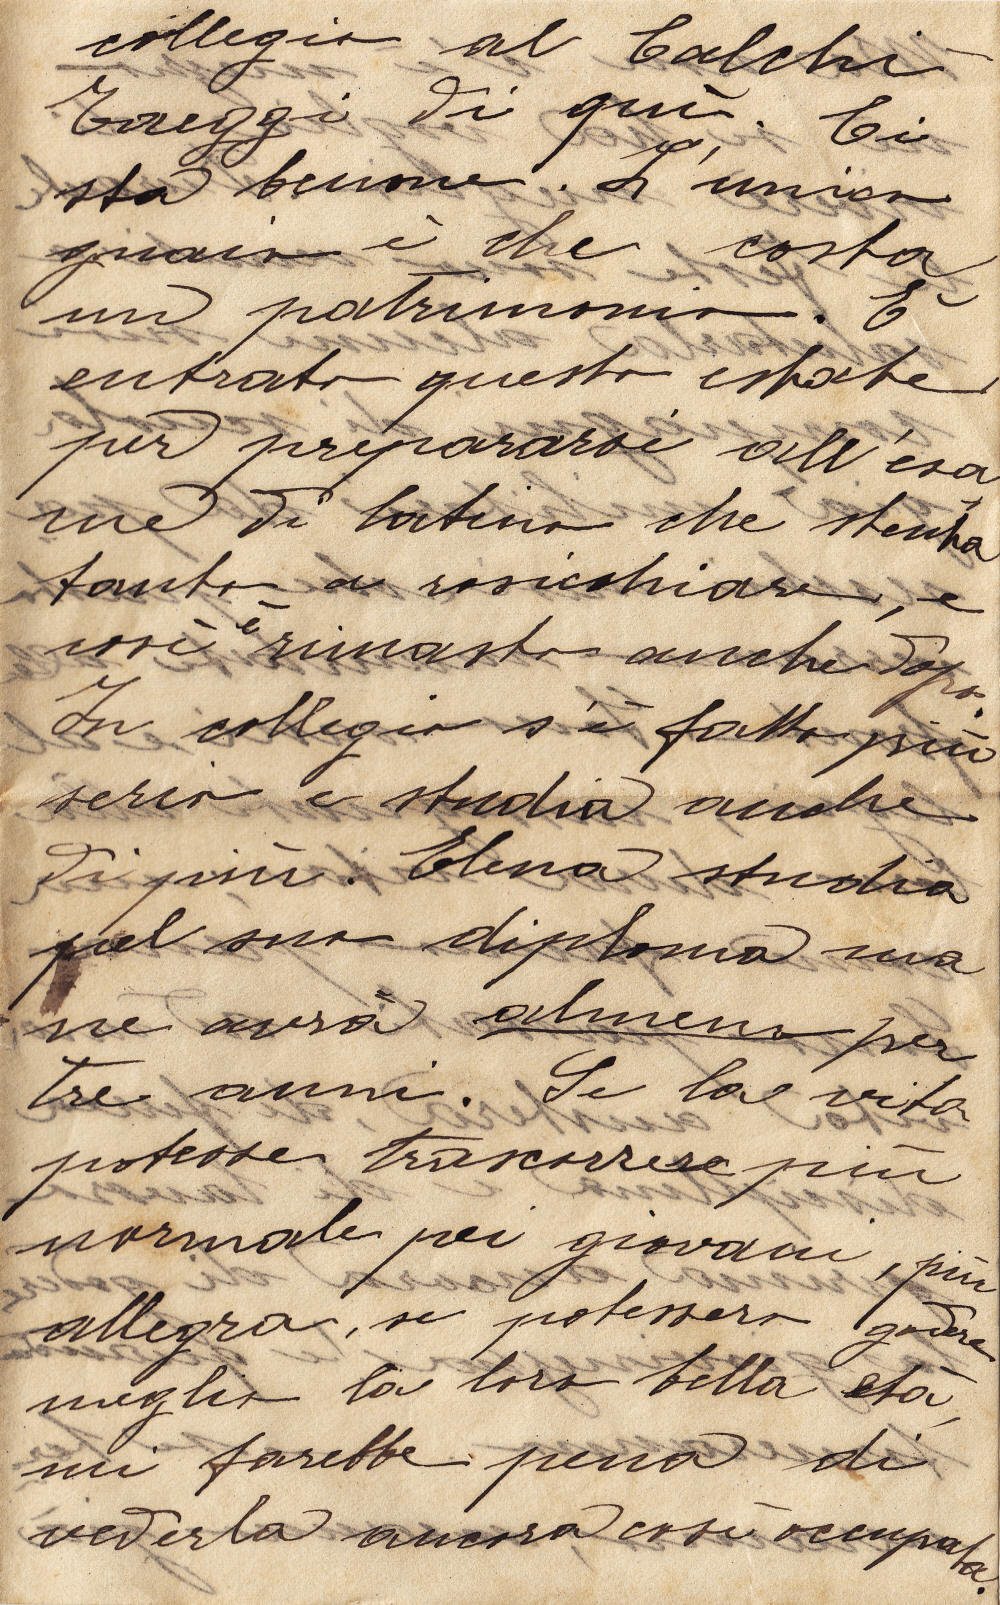 collegio al Calchi
Taeggi di quì. Ci
sta benone. L'unico
guaio è che costa
un patrimonio. È
entrato questo estate
per prepararsi all'esa
me di latino che stenta
tanto a rosicchiare, e
così è rimasto anche dopo.
In collegio s'è fatto più
serio e studia anche
di più. Elena studia
pel suo diploma ma
ne avrà almeno per
tre anni. Se la vita
potesse trascorrere più
normale pei giovani, più
allegra, se potessero godere
meglio la loro bella età,
mi farebbe pena di
vederla ancora così occupata.